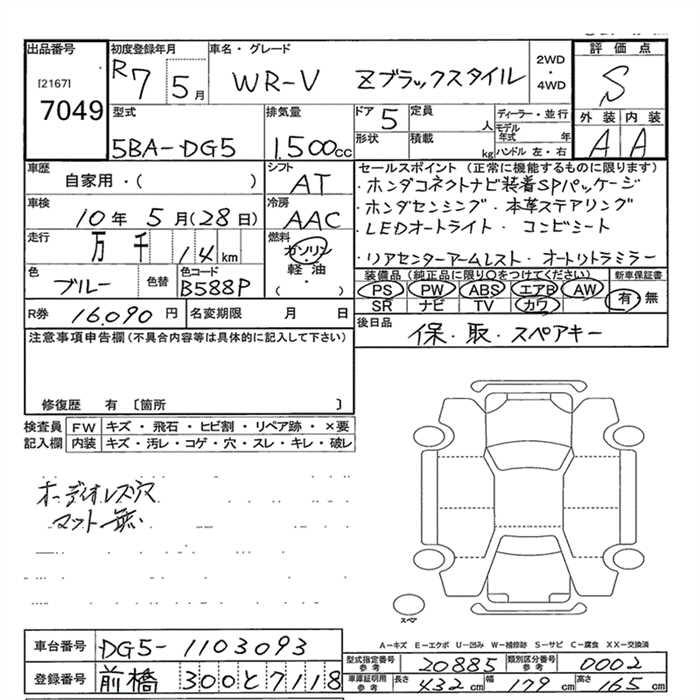 出品番号
[2167]
7049
初度登録年月
R7 5月
車名・グレード
WR-V Zブラックスタイル
2WD
・
4WD
評価点
S
型式
5BA-DG5
排気量
1.500cc
ドア 5
定員 人
ディーラー・並行
モデル年式 年
形状
積載 kg
ハンドル 左・右
外装 内装
A A
車歴
自家用・( )
シフト
AT
車検
10年 5月(28日)
冷房
AAC
走行
万 千 14 km
燃料
ガソリン
軽油
( ・ )
色
ブルー
色替
色コード
B588P
R券 16.090 円
名変期限 月 日
セールスポイント (正常に機能するものに限ります)
・ホンダコネクトナビ装着SPパッケージ
・ホンダセンシング・本革ステアリング
・LEDオートライト・コンビシート
・リアセンターアームレスト・オートリトラミラー
装備品 (純正品に限り○をつけてください)
新車保証書
PS PW ABS エアB AW
SR ナビ TV カワ
有・無
後日品
保・取・スペアキー
注意事項申告欄 (不具合内容等は具体的に記入して下さい)
修復歴 有 〔箇所 〕
検査員 FW キズ・飛石・ヒビ割・リペア跡・×要
記入欄 内装 キズ・汚レ・コゲ・穴・スレ・キレ・破レ
オーディオレス穴
マット無
スペア
A-キズ E-エクボ U-凹み W-補修跡 S-サビ C-腐食 XX-交換済
車台番号 DG5-1103093
登録番号 前橋 300 と 7118
型式指定番号 参考 20885
類別区分番号 参考 0002
車庫証明用 参考
長さ 432 cm 幅 179 cm 高さ 165 cm